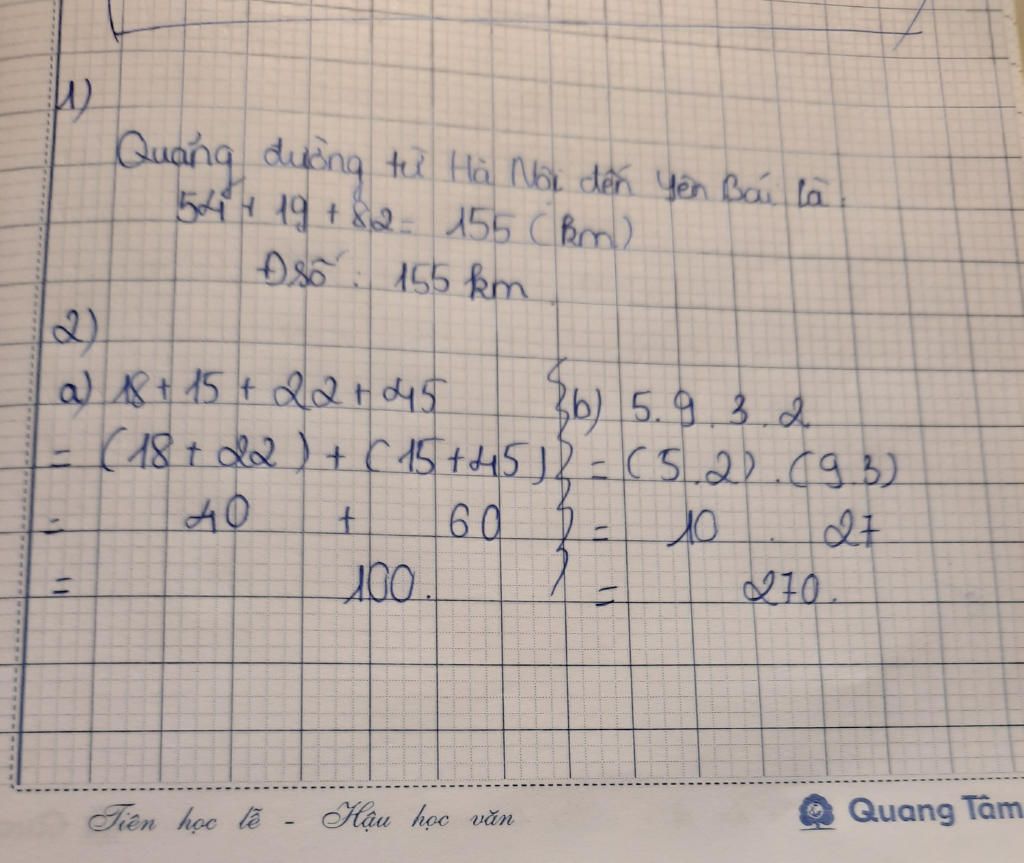 1)
Quãng đường từ Hà Nội đến Yên Bái là.
54 + 19 + 82 = 155 (km)
Đsố : 155 km
2)
a) 18 + 15 + 22 + 45
= (18 + 22) + (15 + 45)
= 40 + 60
= 100.
b) 5. 9. 3. 2
= (5.2) . (9.3)
= 10 . 27
= 270.
Tiên học lễ - Hậu học văn
Quang Tâm